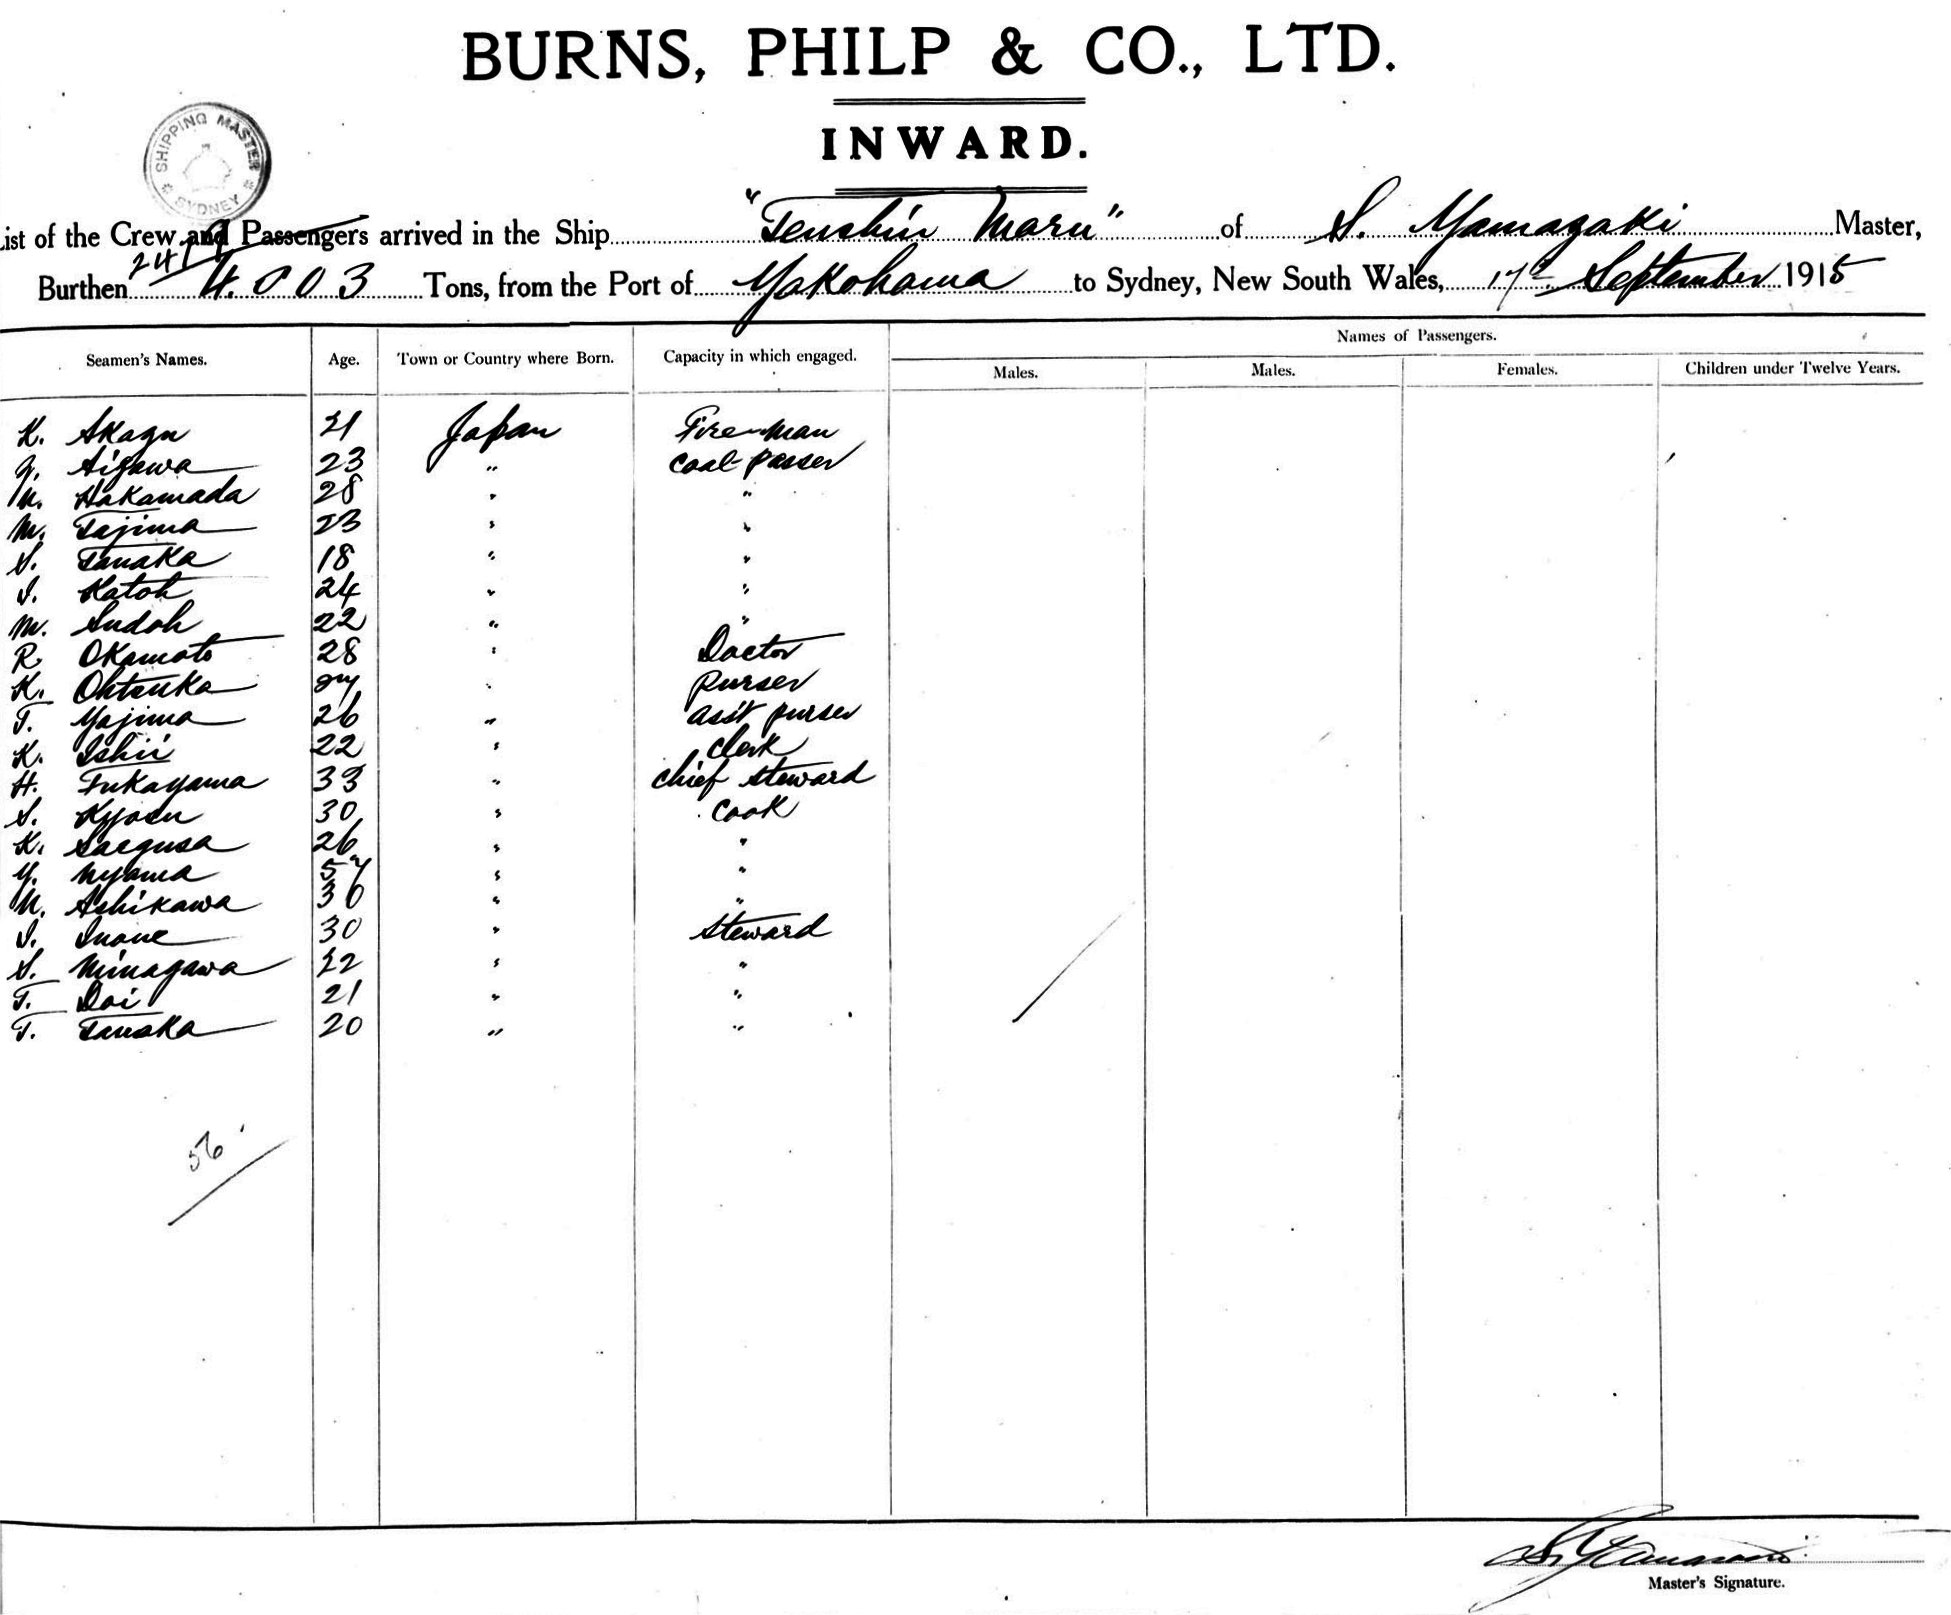 BURNS, PHILP & CO., LTD.
INWARD.
SHIPPING MASTER SYDNEY
ist of the Crew and Passengers arrived in the Ship "Tenshin Maru" of S. Yamazaki Master,
2419
Burthen 4.003 Tons, from the Port of Yokohama to Sydney, New South Wales, 17th September 1915
Names of Passengers.
Seamen's Names. Age. Town or Country where Born. Capacity in which engaged. Males. Males. Females. Children under Twelve Years.
K. Akagu 21 Japan Fire-man
Aigawa 23 " Coal-passer
N. Hakamada 28 " "
M. Tajima 23 " "
S. Tanaka 18 " "
I. Katoh 24 " "
M. Sudoh 22 " "
R. Okamoto 28 " Doctor
K. Ohtsuka 27 " Purser
T. Yajima 26 " ass't purser
K. Ishii 22 " Clerk
H. Fukayama 33 " chief steward
S. Kyosu 30 " Cook
K. Saegusa 26 " "
Y. 57 " "
N. Ashikawa 30 " "
I. Inoue 30 " steward
S. Minagawa 22 " "
T. Doi 21 " "
T. Tanaka 20 " "
56
Master's Signature.